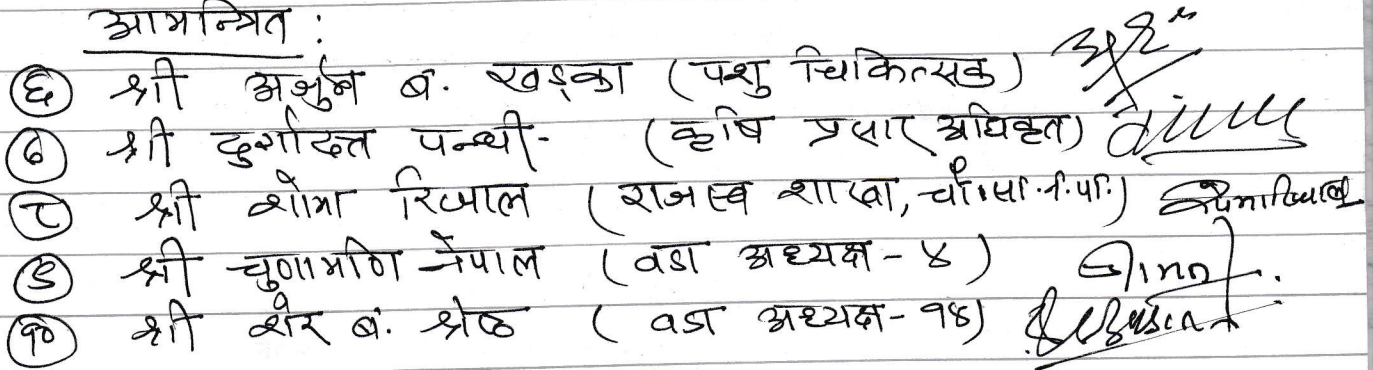 आमन्त्रित :
६ श्री अर्जुन ब. खड्का (पशु चिकित्सक)
७ श्री दुर्गादत्त पन्थी - (कृषि प्रसार अधिकृत)
८ श्री शोभा रिजाल (राजस्व शाखा, चौ.सा.न.पा.)
९ श्री चुणामणि नेपाल (वडा अध्यक्ष - ४)
१० श्री शेर ब. श्रेष्ठ (वडा अध्यक्ष - १४)